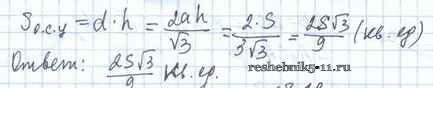 S о.с.у = d · h = 2ah/√3 = 2·S/3√3 = 2S√3/9 (кв. ед)
Ответ: 2S√3/9 кв. ед.
reshebnik5-11.ru